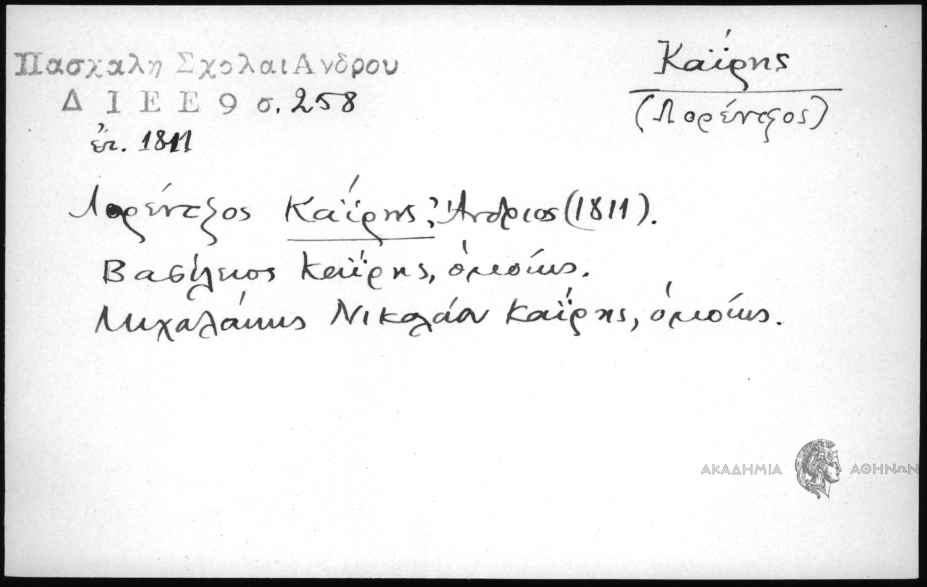 Πασχαλη Σχολαι Ανδρου
Δ Ι Ε Ε 9 σ. 258
ἐτ. 1811
Καΐρης
(Λορέντζος)
Λορέντζος Καΐρης, Ἄνδριος (1811).
Βασίλειος Καΐρης, ὁμοίως.
Μιχαλάκης Νικολάου Καΐρης, ὁμοίως.
ΑΚΑΔΗΜΙΑ ΑΘΗΝΩΝ